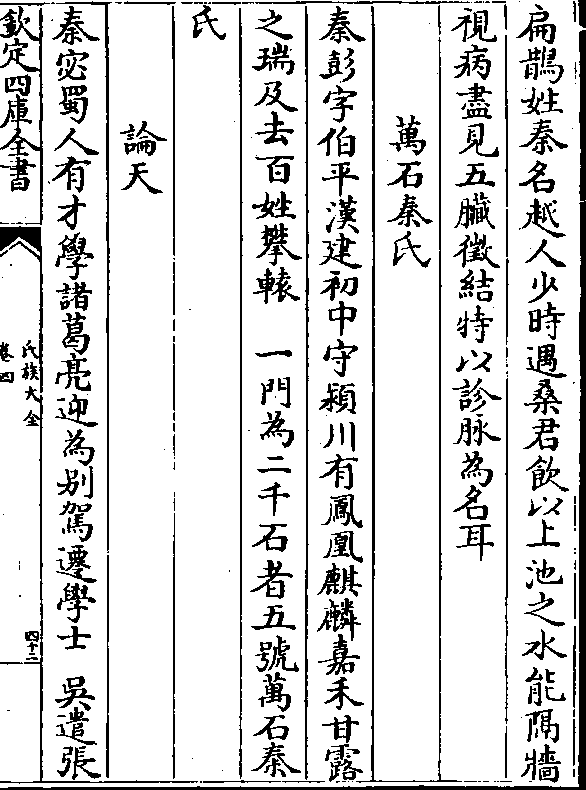 扁鵲姓秦名越人少時遇桑君飲以上池之水能隔牆
視病盡見五臟徵結特以診脉為名耳
萬石秦氏
秦彭字伯平漢建初中守潁川有鳳凰麒麟嘉禾甘露
之瑞及去百姓攀轅　一門為二千石者五號萬石秦
氏
論天
秦宓蜀人有才學諸葛亮迎為别駕遷學士　吳遣張
欽定四庫全書
氏族大全
卷四
四十二